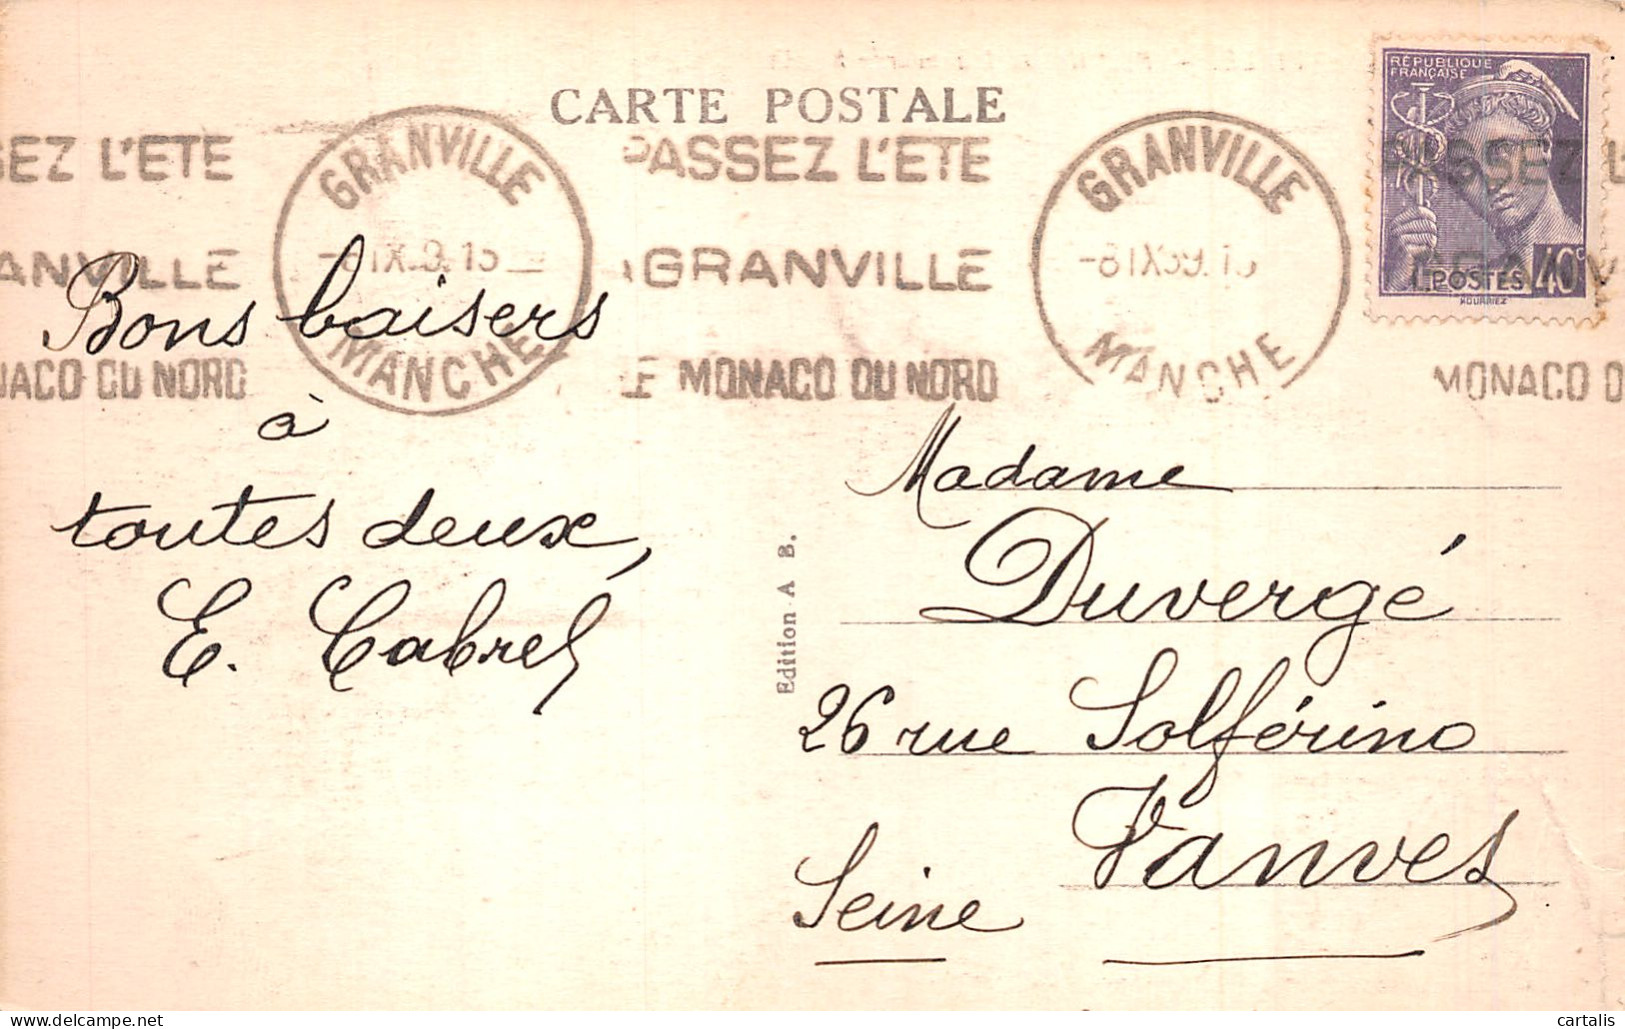 CARTE POSTALE
SEZ L'ETE
ANVILLE
NACO DU NORD
GRANVILLE
MANCHE
PASSEZ L'ETE
A GRANVILLE
LE MONACO DU NORD
GRANVILLE
-8 IX 39
MANCHE
RÉPUBLIQUE
FRANÇAISE
POSTES
40c
HOURRIEZ
MONACO D
Bons baisers
à
toutes deux,
E. Cabrel
Edition A B.
Madame
Duvergé
26 rue Solférino
Vanves
Seine
cartalis